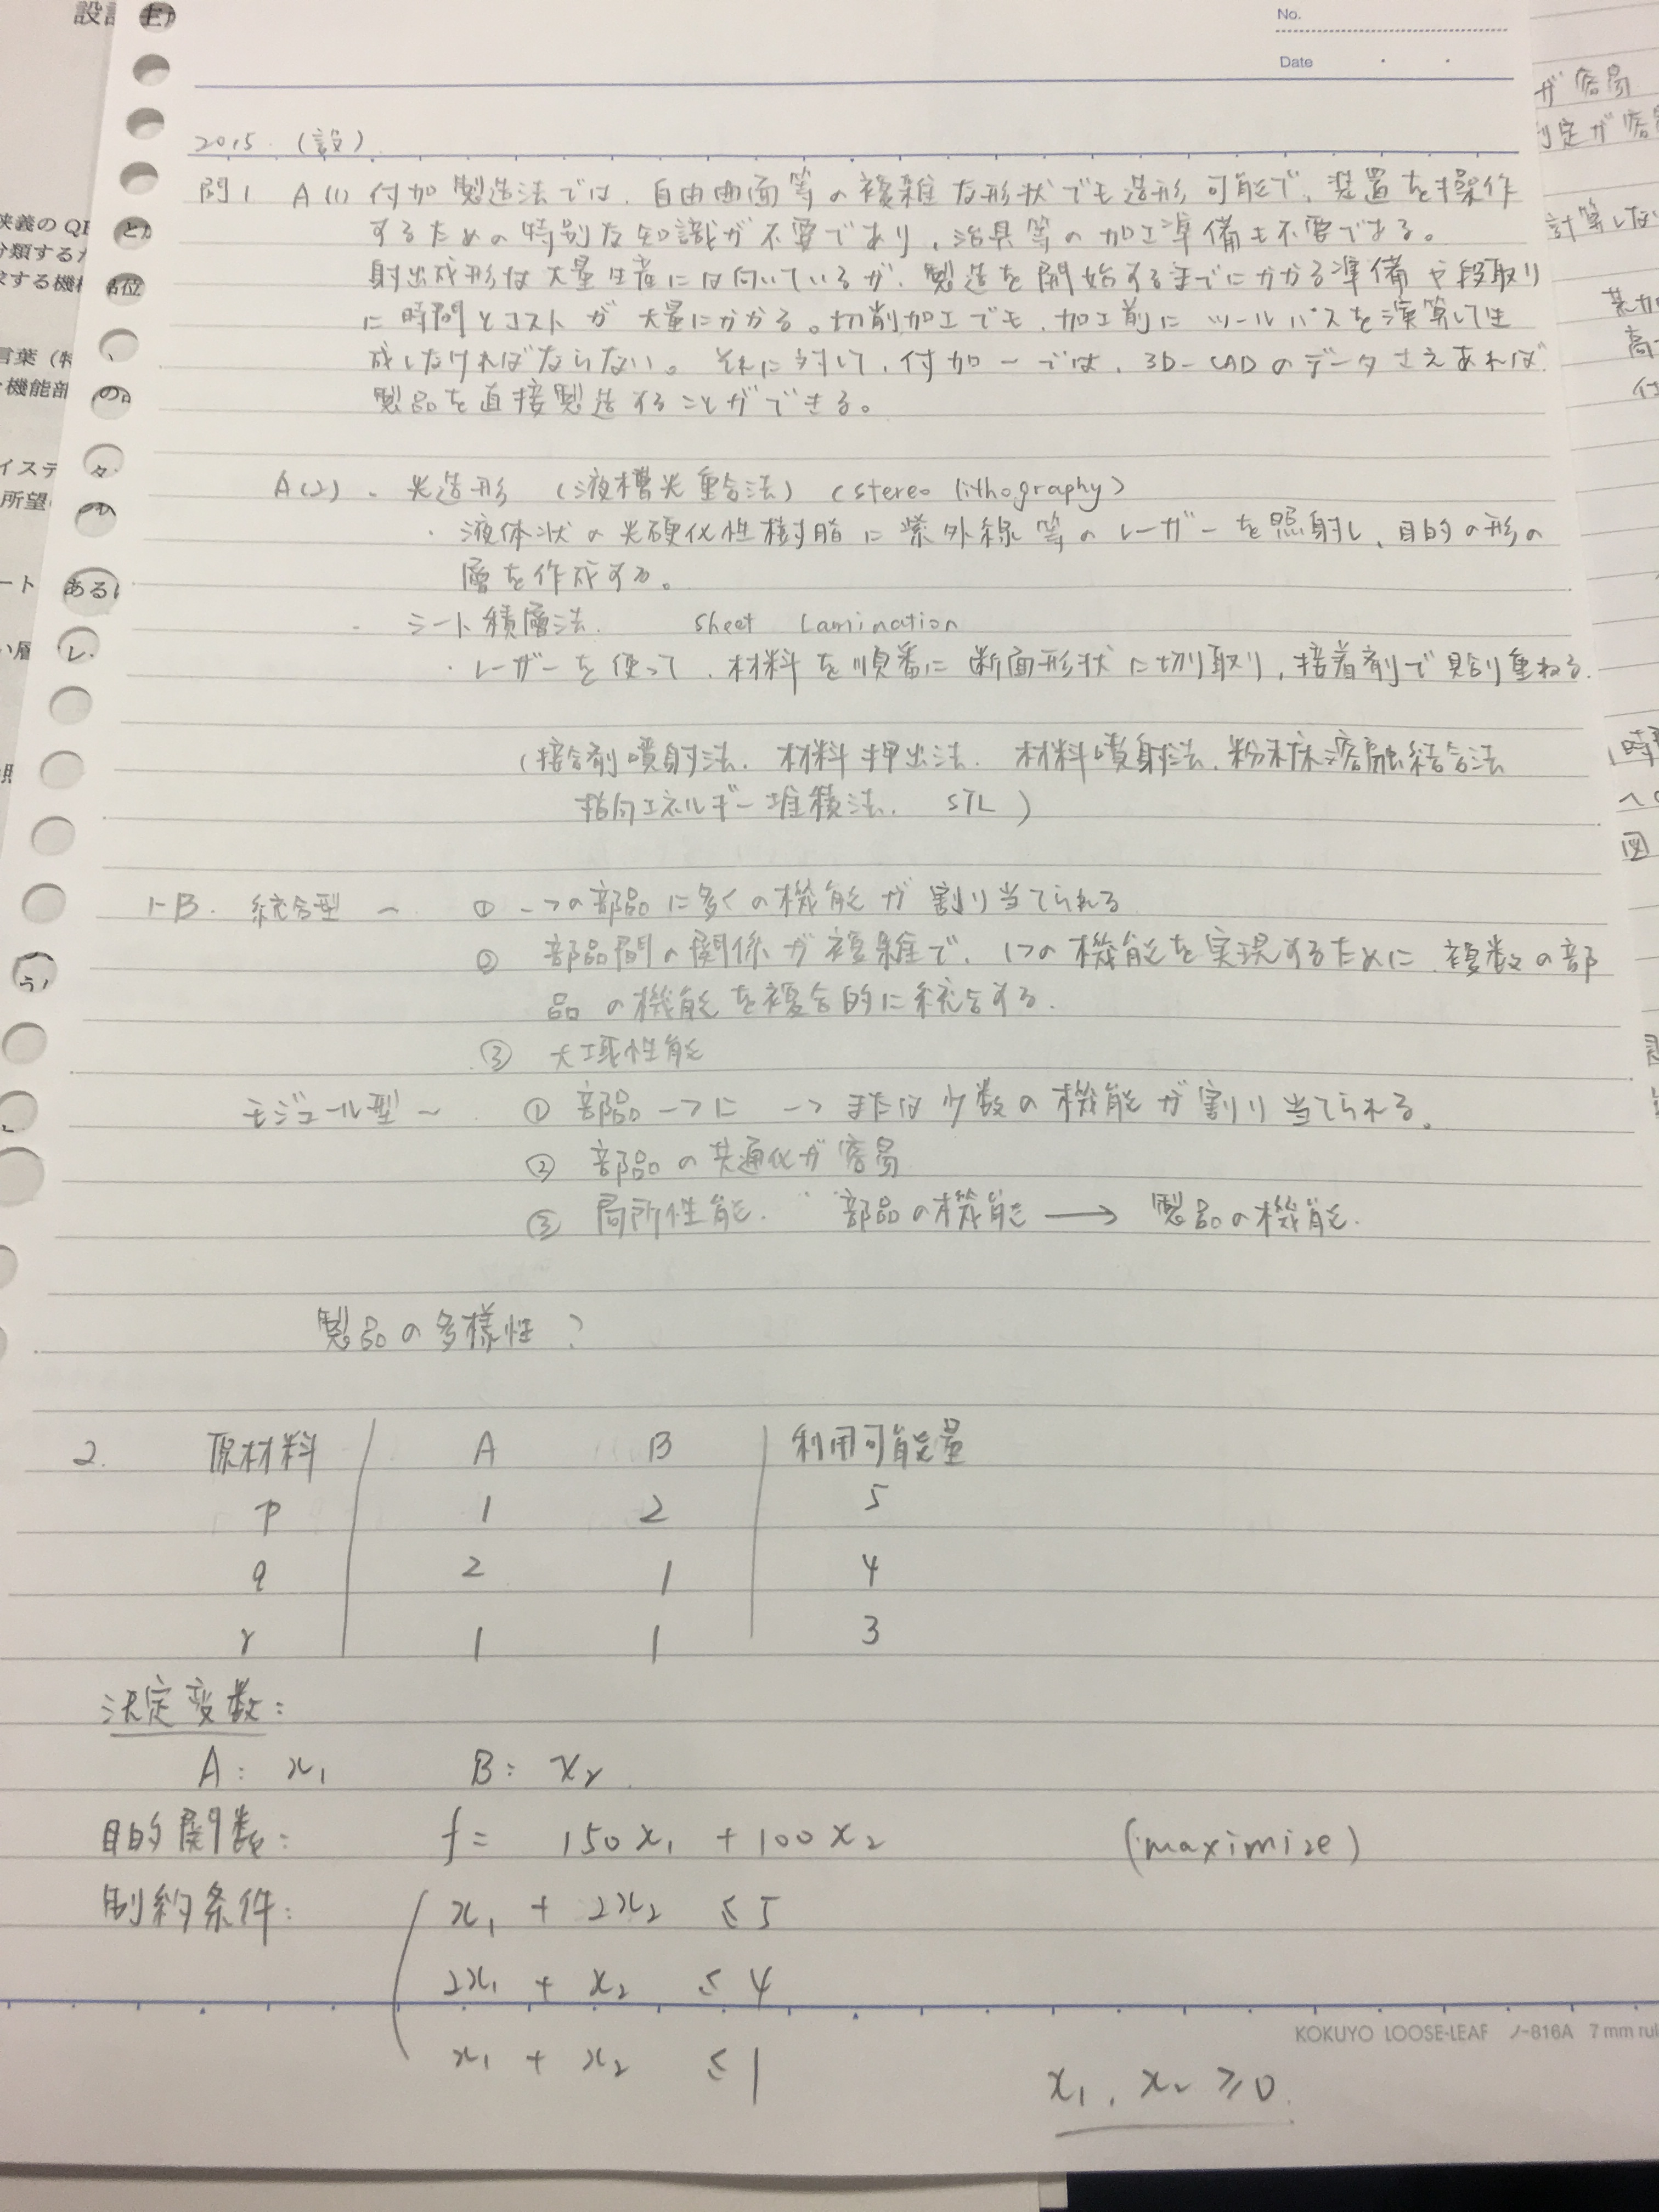 No.
Date
2015. (設)
問1 A(1) 付加製造法では、自由曲面等の複雑な形状でも造形可能で、装置を操作
するための特別な知識が不要であり、治具等の加工準備も不要である。
射出成形は大量生産には向いているが、製造を開始するまでにかかる準備や段取り
に時間とコストが大量にかかる。切削加工でも、加工前にツールパスを演算して生
成しなければならない。それに対して、付加〜では、3D-CADのデータさえあれば、
製品を直接製造することができる。
A(2) 、光造形 (液槽光重合法) (stereo lithography)
・液体状の光硬化性樹脂に紫外線等のレーザーを照射し、目的の形の
層を作成する。
シート積層法. sheet Lamination
・レーザーを使って、材料を順番に断面形状に切り取り、接着剤で貼り重ねる.
(接合剤噴射法. 材料押出法. 材料噴射法. 粉末床溶融結合法
指向エネルギー堆積法. STL )
1-B. 統合型 〜 ① 一つの部品に多くの機能が割り当てられる
② 部品間の関係が複雑で、1つの機能を実現するために複数の部
品の機能を複合的に統合する.
③ 大域性能
モジュール型〜 ① 部品一つに一つまたは少数の機能が割り当てられる。
② 部品の共通化が容易
③ 局所性能. 部品の機能 → 製品の機能.
製品の多様性?
2. 原材料 A B 利用可能量
p 1 2 5
q 2 1 4
r 1 1 3
決定変数:
A: x₁ B: x₂
目的関数: f = 150x₁ + 100x₂ (maximize)
制約条件: x₁ + 2x₂ ≤ 5
2x₁ + x₂ ≤ 4
x₁ + x₂ ≤ 1
x₁, x₂ ≥ 0.
KOKUYO LOOSE-LEAF ノ-816A 7 mm rul
狭義のQ
分類する
言葉
機能部
イステ
所望
ート
ある
が容易
判定が容
計算しな
図